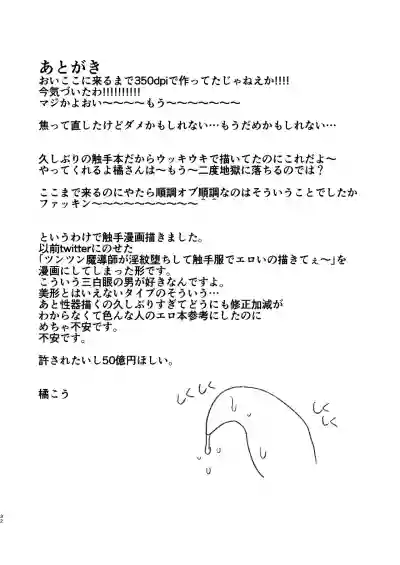 あとがき
おいここに来るまで350dpiで作ってたじゃねえか!!!!
今気づいたわ!!!!!!!!!!
マジかよおい〜〜〜〜もう〜〜〜〜〜〜〜
焦って直したけどダメかもしれない…もうだめかもしれない…
久しぶりの触手本だからウッキウキで描いてたのにこれだよ〜
やってくれるよ橘さんは〜もう〜二度地獄に落ちるのでは?
ここまで来るのにやたら順調オブ順調なのはそういうことでしたか
ファッキン〜〜〜〜〜〜〜〜〜〜^^
というわけで触手漫画描きました。
以前twitterにのせた
「ツンツン魔導師が淫紋堕ちして触手服でエロいの描きてぇ〜」を
漫画にしてしまった形です。
こういう三白眼の男が好きなんですよ。
美形とはいえないタイプのそういう…
あと性器描くの久しぶりすぎてどうにも修正加減が
わからなくて色んな人のエロ本参考にしたのに
めちゃ不安です。
不安です。
許されたいし50億円ほしい。
橘こう
しくしく
しくしく
32